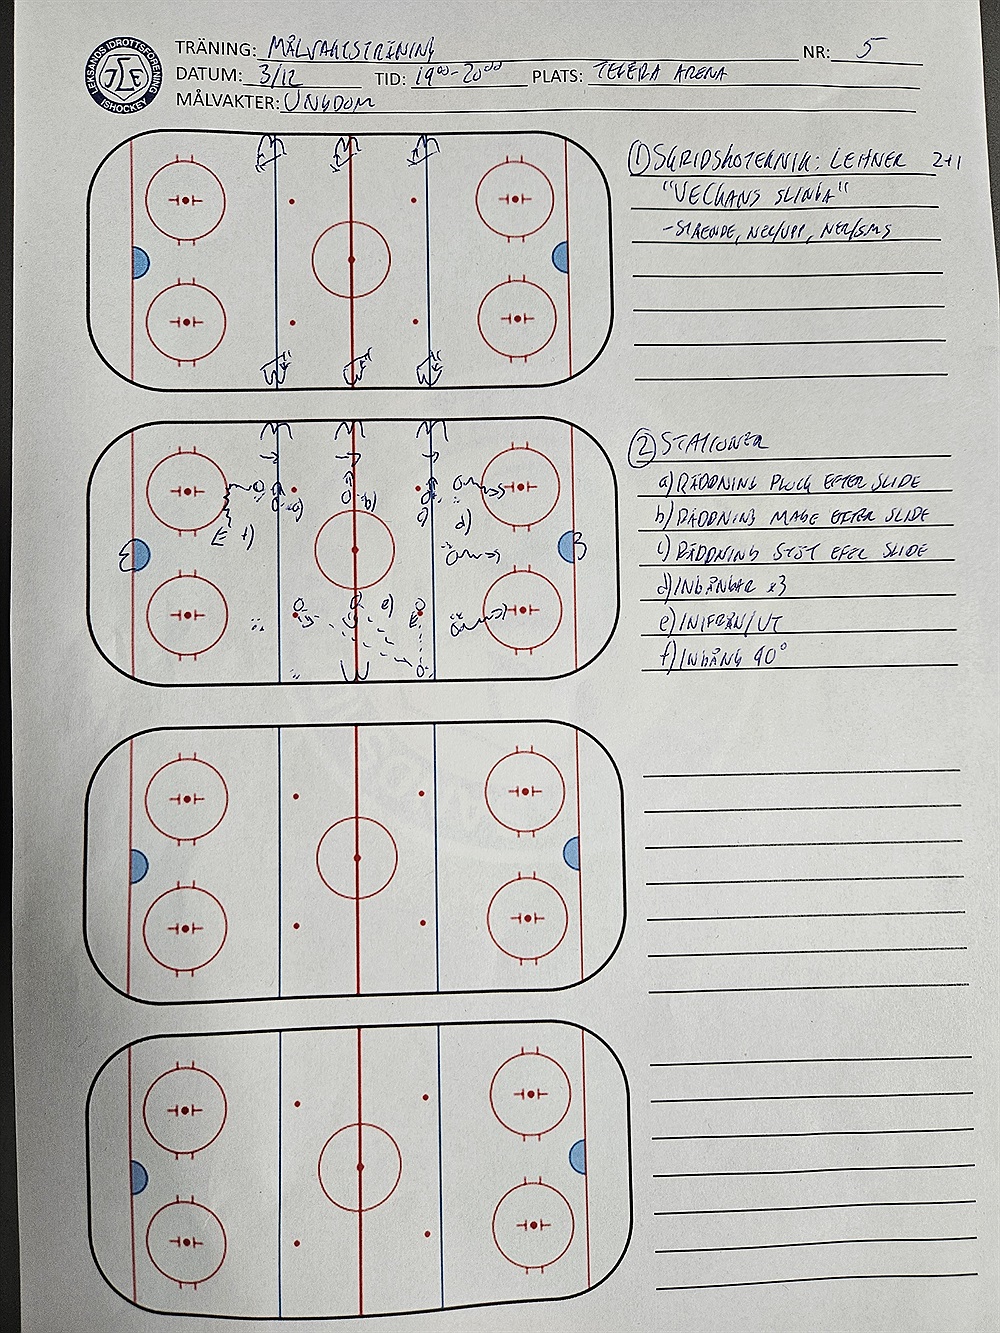 LEKSANDS IDROTTSFÖRENING
ISHOCKEY
TRÄNING: MÅLVAKTSTRÄNING
NR: 5
DATUM: 3/12 TID: 19⁰⁰-20⁰⁰ PLATS: TEGERA ARENA
MÅLVAKTER: UNGDOM
① SKRIDSKOTEKNIK: LEHNER 2+1
"VECKANS SLINGA"
- STÅENDE, NER/UPP, NER/SMS
② STATIONER
a) RÄDDNING PLOCK EFTER SLIDE
b) RÄDDNING MAGE EFTER SLIDE
c) RÄDDNING STÖT EFTER SLIDE
d) INGÅNGAR x3
e) INIFRÅN/UT
f) INGÅNG 90°
a) b) c) d)
f)
e)